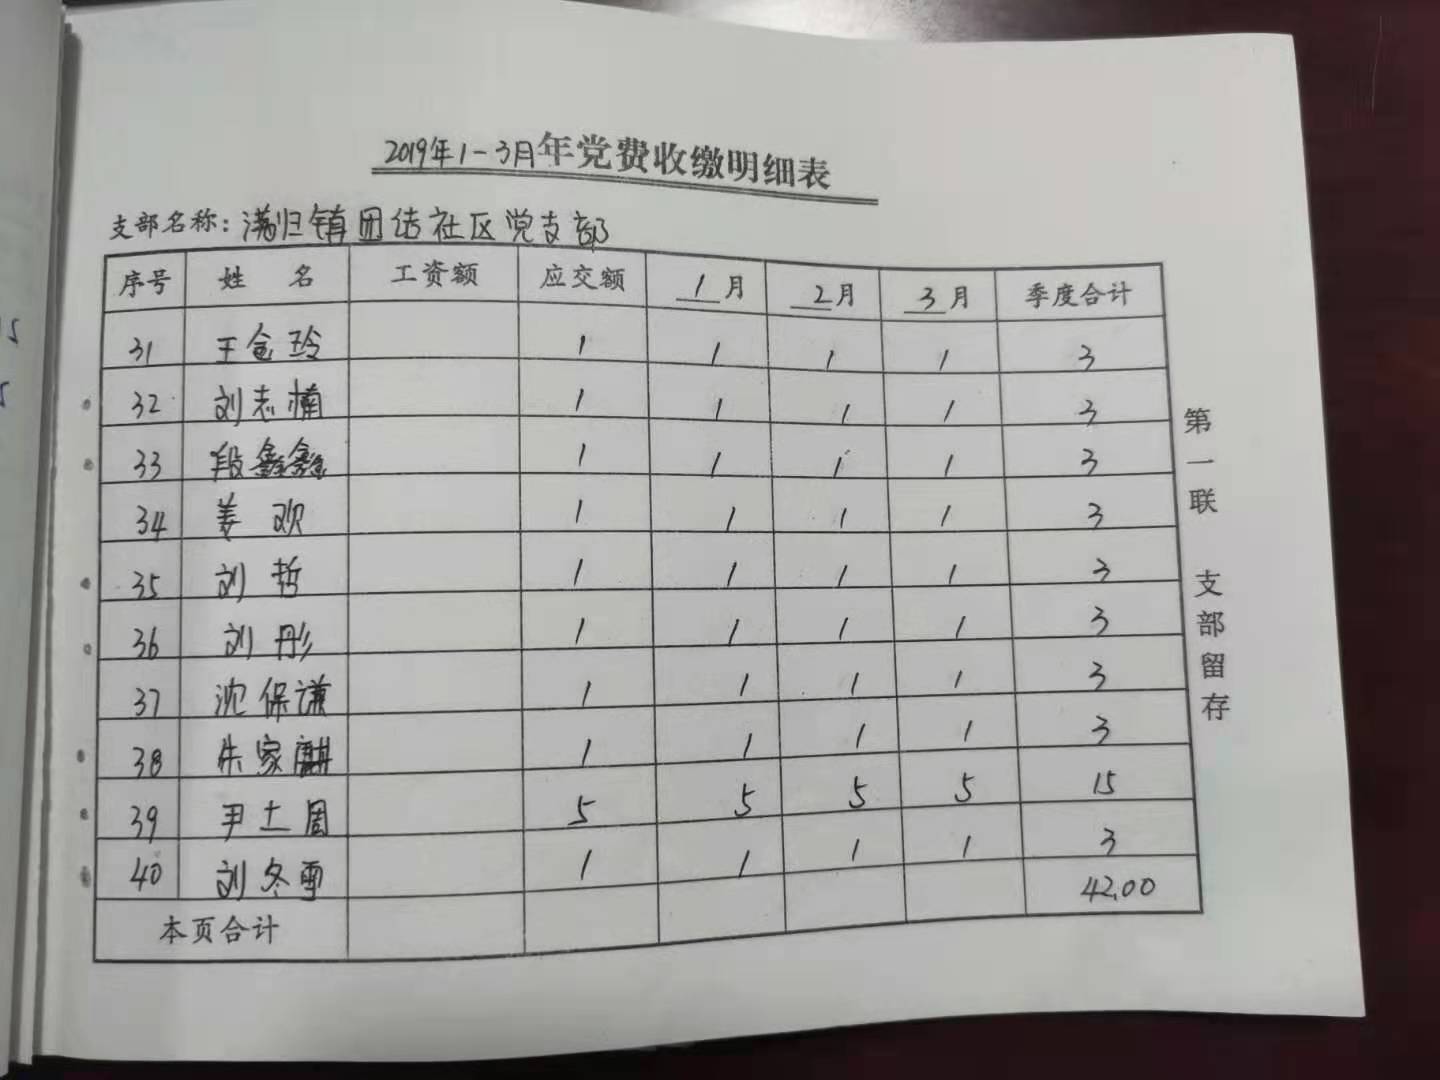 2019年1-3月年党费收缴明细表
支部名称：满归镇团结社区党支部
序号 姓名 工资额 应交额 1月 2月 3月 季度合计
31 王金玲 1 1 1 1 3
32 刘志楠 1 1 1 1 3
33 段鑫鑫 1 1 1 1 3
34 姜欢 1 1 1 1 3
35 刘哲 1 1 1 1 3
36 刘彤 1 1 1 1 3
37 沈保谦 1 1 1 1 3
38 朱家麒 1 1 1 1 3
39 尹士周 5 5 5 5 15
40 刘冬雪 1 1 1 1 3
本页合计 42.00
第一联 支部留存